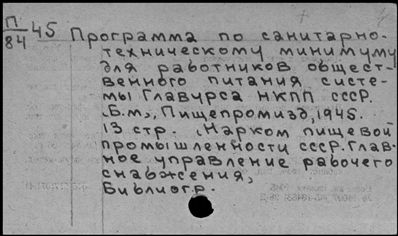 П/84 45 Программа по санитарно-
техническому минимуму
для работников общест-
венного питания систе-
мы Главурса НКПП СССР.
"Б.м.", Пищепромизд, 1945.
13 стр. (Нарком пищевой
промышленности СССР. Глав-
ное управление рабочего
снабжения)
Библиогр.